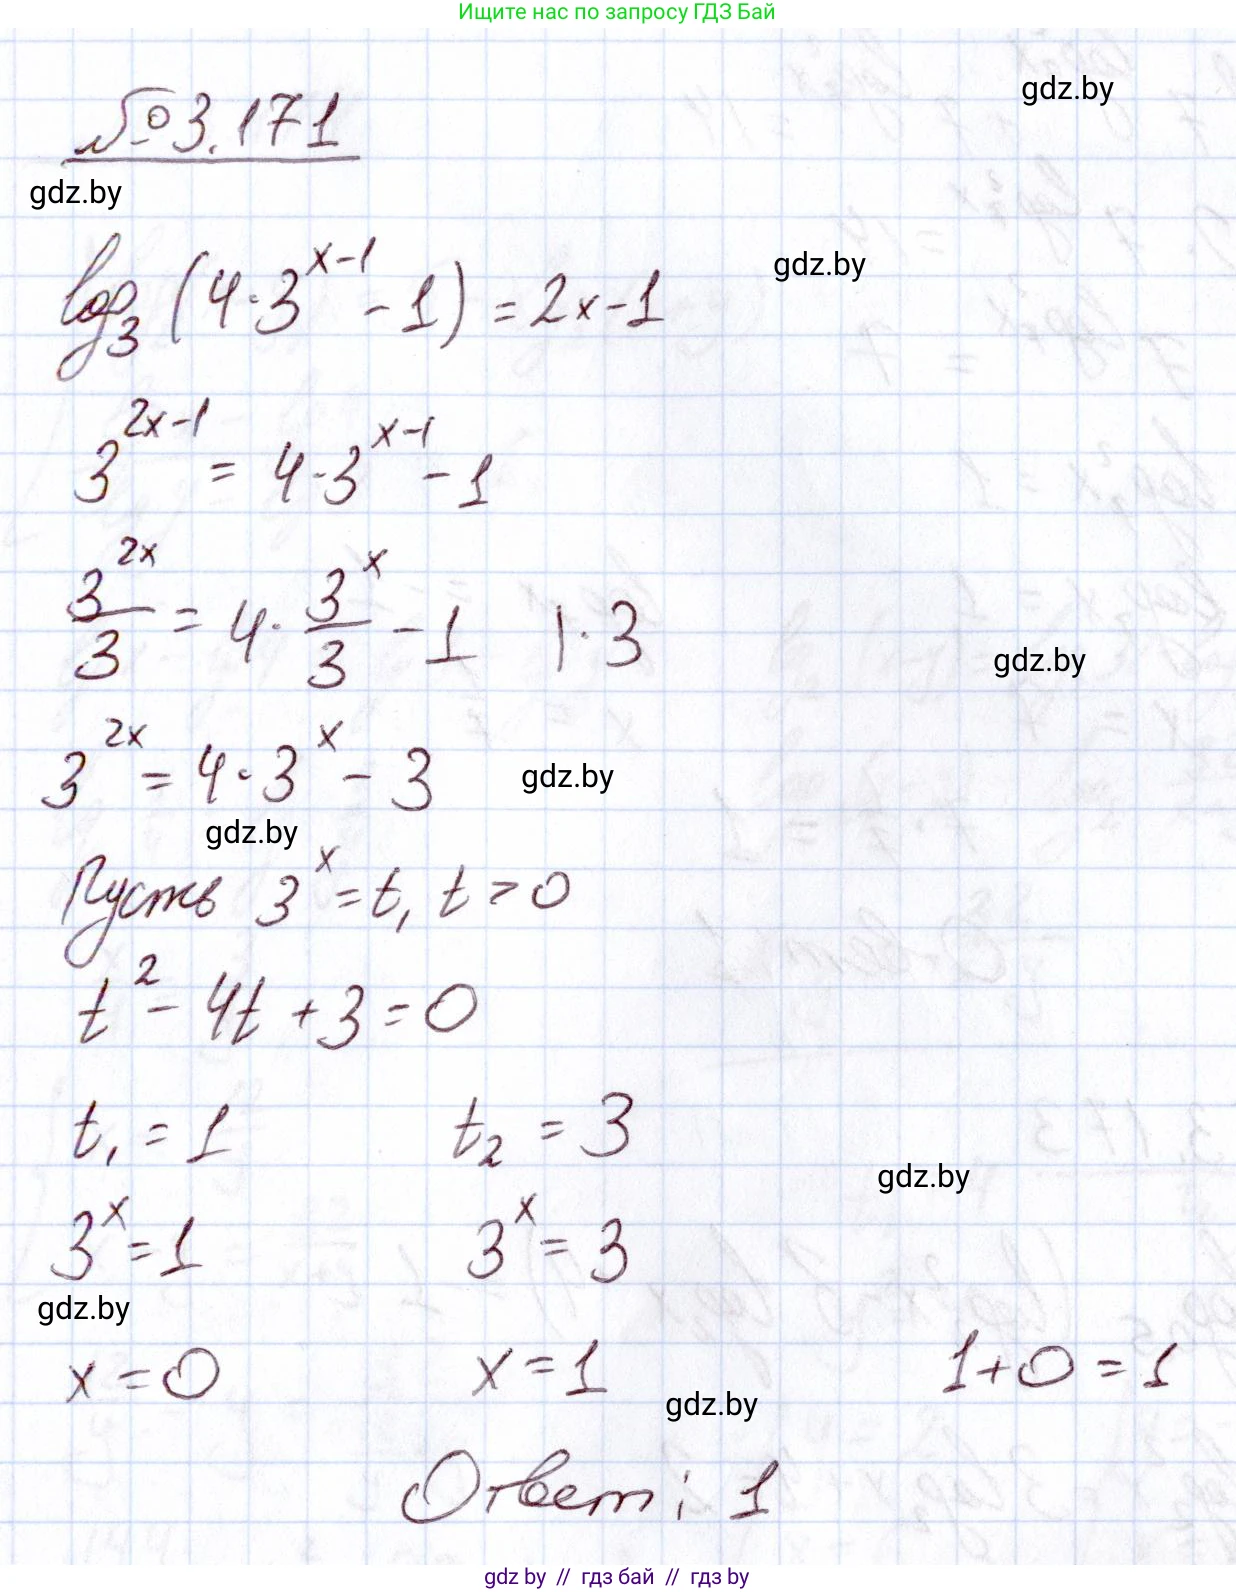 Ищите нас по запросу ГДЗ Бай
gdz.by
№ 3.171
gdz.by
log₃(4·3^(x-1) - 1) = 2x-1
gdz.by
3^(2x-1) = 4·3^(x-1) - 1
3^(2x)/3 = 4·3^x/3 - 1 |·3
gdz.by
3^(2x) = 4·3^x - 3
gdz.by
gdz.by
Пусть 3^x = t, t > 0
t² - 4t + 3 = 0
t₁ = 1 t₂ = 3
gdz.by
3^x = 1 3^x = 3
gdz.by
x = 0 x = 1 1+0 = 1
gdz.by
Ответ: 1
gdz by // гдз бай // гдз by